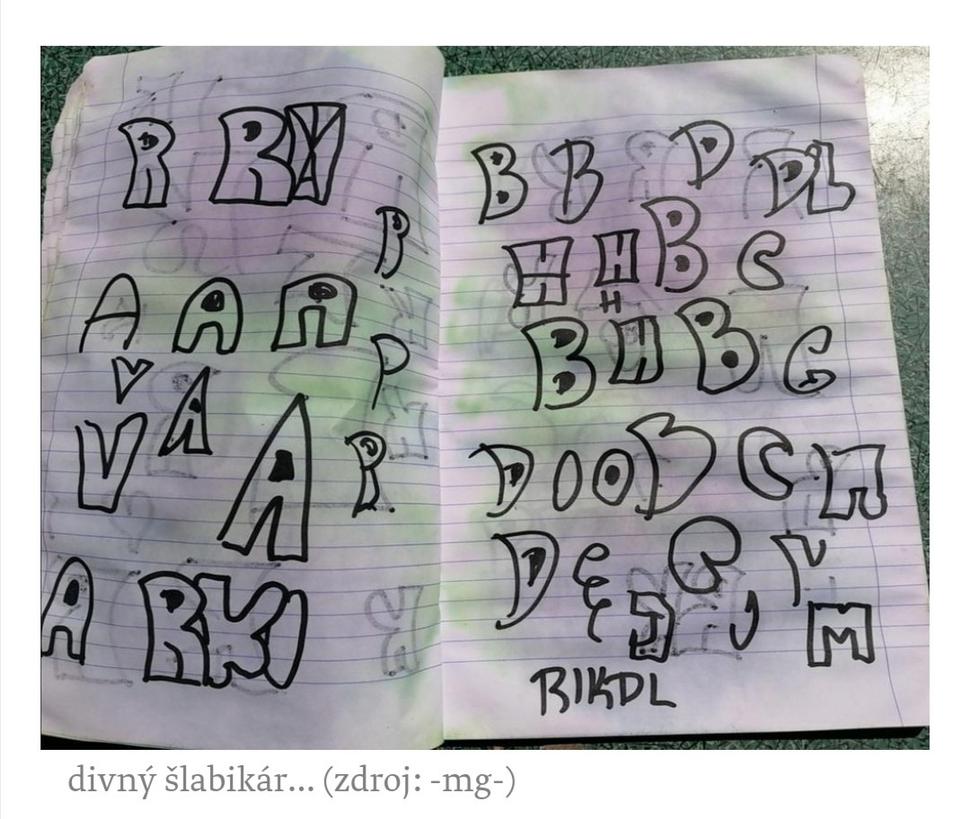 R RK
B
A A A
P
V A
V A R
A RKI
B B D DL
H H B C
H
B H B C
D O O D C M
D E C V
J J M
RIKDL
divný šlabikár... (zdroj: -mg-)